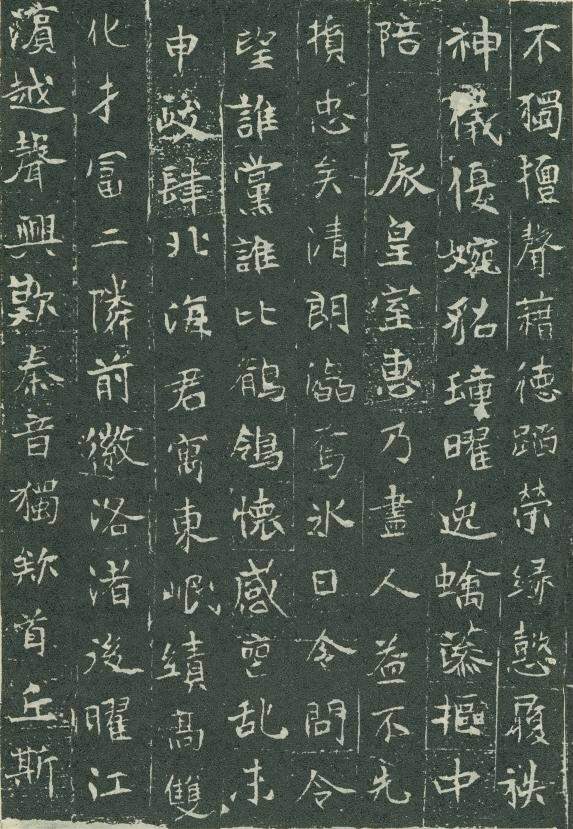 不獨擅聲藉徳蹈榮緣懿履袟
神儀優婉曜逸樞中
陪 宸皇室惠乃盡人益不先
損忠矣清朗焉氷日令問令
望誰黨誰比鶺鴒懷感喪乱未
申跂肆北海君寓東岷績高雙
化才冨二隣前徽洛渚後曜江
濱越聲興歎秦音獨欵首丘斯